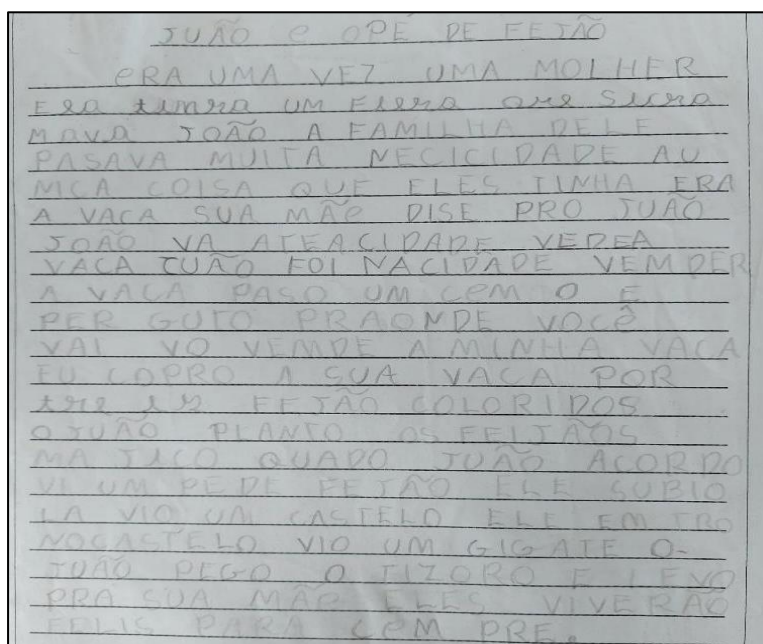 JUÃO e OPÉ DE FEJÃO
eRA UMA VEZ UMA MOLHER
Ela tinha UM que
MAVA JOÃO A FAMILHA DELE
PASAVA MUITA NECICIDADE AU
NICA COISA QUE ELES TINHA ERA
A VACA SUA MÃe DISE PRO JUÃO
JOÃO VA ATEACIDADE VEDEA
VACA JUÃO FOI NACIDADE VEMDER
A VACA PASO UM CeM O E
PER GUTO PRAONDE VOCê
VAI VO VEMDE A MINHA VACA
EU COPRO A SUA VACA POR
FEJÃO COLORIDOS
O JUÃO PLANTO OS FEIJÃOS
MA JICO QUADO JUÃO ACORDO
VI UM PE DE FEJÃO ELE SUBIO
LA VIO UM CASTELO ELE EM TRO
NOCASTELO VIO UM GIGATE O-
JUÃO PEGO O TIZORO E LEVO
PRA SUA MÃe ELES VIVERÃO
FELIS PARA CeM PRE.